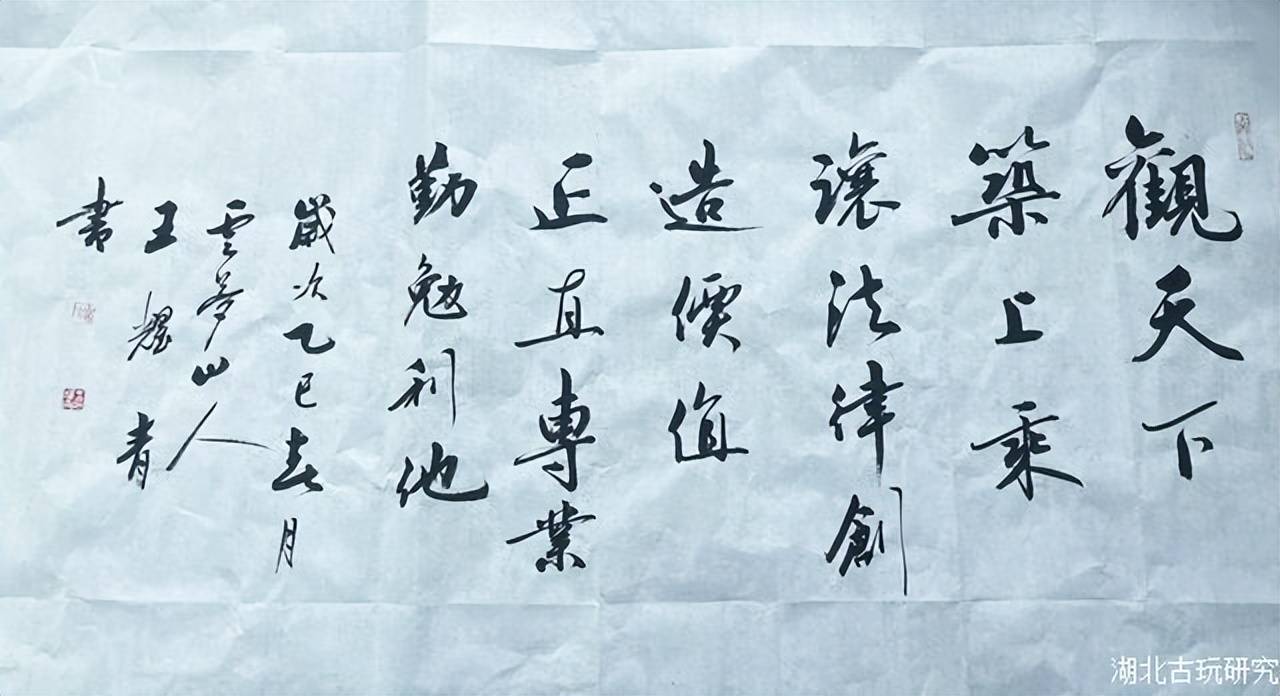 觀天下
築上乘
讓法律創
造價值
正直專業
勤勉利他
歲次乙巳春月
雲夢山人
王耀青
書
湖北古玩研究